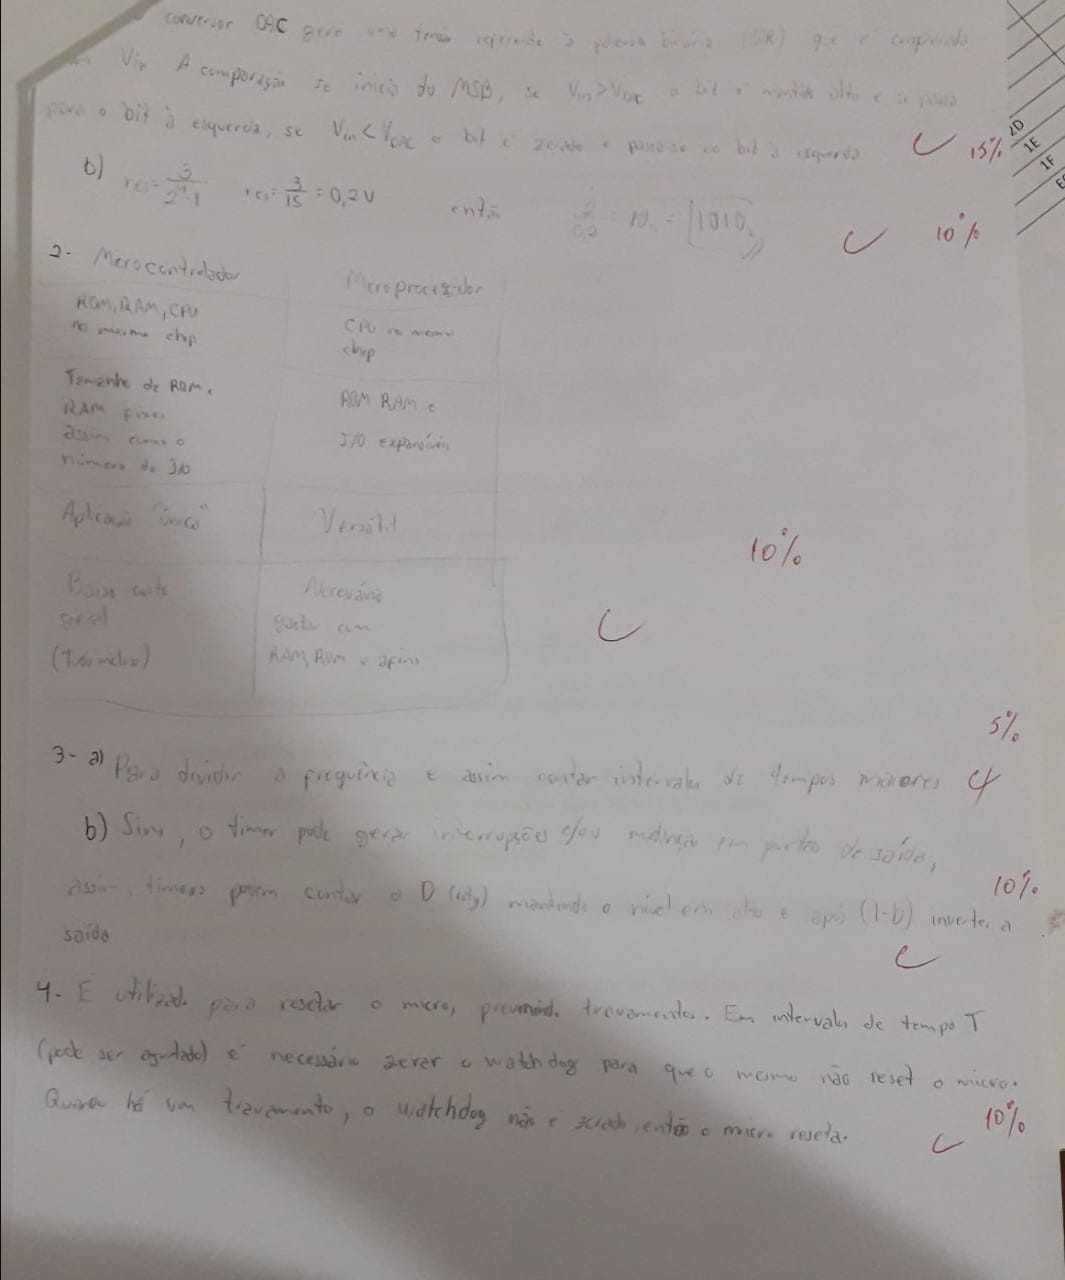 conversor DAC gera uma tensão referente à palavra binária que é comparada
Vin A comparação se inicia do MSB, se Vin > VDAC o bit é mantido alto e se passa
para o bit à esquerda, se Vin < VDAC o bit é zerado e passa-se ao bit à esquerda
C 15%
2D
1E
1F
b) res = 3/2^4-1 res = 3/15 = 0,2V então 2/0,2 = 10 = 1010
C 10%
2- Microcontrolador Microprocessador
ROM, RAM, CPU CPU no mesmo
no mesmo chip chip
Tamanho de ROM, ROM RAM e
RAM fixos I/O expansíveis
assim como o
número de I/O
Aplicação "única" Versátil
10%
Baixo custo Necessário
geral gastar com
(Tudo incluso) RAM, ROM e afins
C
5%
3- a) Para dividir a frequência e assim contar intervalos de tempos maiores
b) Sim, o timer pode gerar interrupções e/ou mudança em portas de saída,
10%
assim, timers podem contar o D (duty) mantendo o nível em alto e após (1-D) inverter a
saída
C
4. É utilizado para resetar o micro, prevenindo travamentos. Em intervalos de tempo T
(pode ser ajustado) é necessário zerar o watchdog para que o mesmo não reset o micro.
Quando há um travamento, o watchdog não é zerado, então o micro reseta.
C 10%